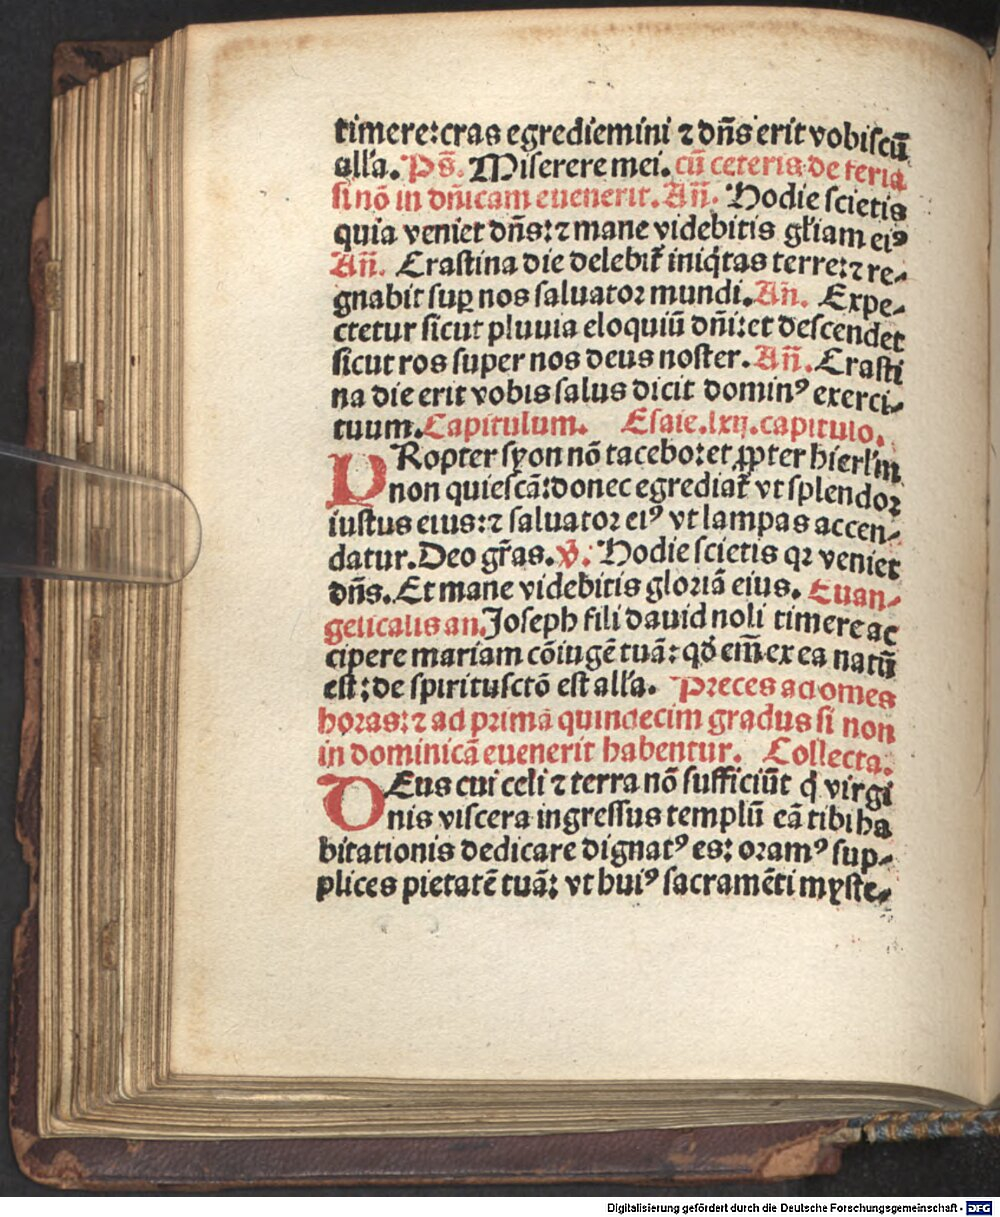 timere:cras egrediemini ⁊ dn̄s erit vobiscū
all'a. Ps̄. Miserere mei. cū ceteris de feria
si nō in dn̄icam euenerit. An̄. Hodie scietis
quia veniet dn̄s:⁊ mane videbitis gl'iam eiꝰ
An̄. Crastina die delebit᷑ iniq̄tas terre:⁊ re-
gnabit suꝑ nos saluator mundi. An̄. Expe-
ctetur sicut pluuia eloquiū dn̄i:et descendet
sicut ros super nos deus noster. An̄. Crasti
na die erit vobis salus dicit dominꝰ exerci-
tuum. Capitulum. Esaie.lxij.capitulo.
PRopter syon nō tacebo:et ꝓpter hierl'm
non quiescā:donec egrediat᷑ vt splendor
iustus eius:⁊ saluator eiꝰ vt lampas accen-
datur. Deo gr̄as. ℣. Hodie scietis qꝛ veniet
dn̄s. Et mane videbitis gloriā eius. Euan-
gelicalis an. Joseph fili dauid noli timere ac
cipere mariam cōiugē tuā: qd̄ em̄ ex ea natū
est:de spiritusctō est all'a. Preces ad omēs
horas:⁊ ad primā quindecim gradus si non
in dominicā euenerit habentur. Collecta.
DEus cui celi ⁊ terra nō sufficiūt q̇ virgi
nis viscera ingressus templū eā tibi ha
bitationis dedicare dignatꝰ es: oramꝰ sup-
plices pietatē tuā: vt huiꝰ sacramēti myste-
Digitalisierung gefördert durch die Deutsche Forschungsgemeinschaft - DFG